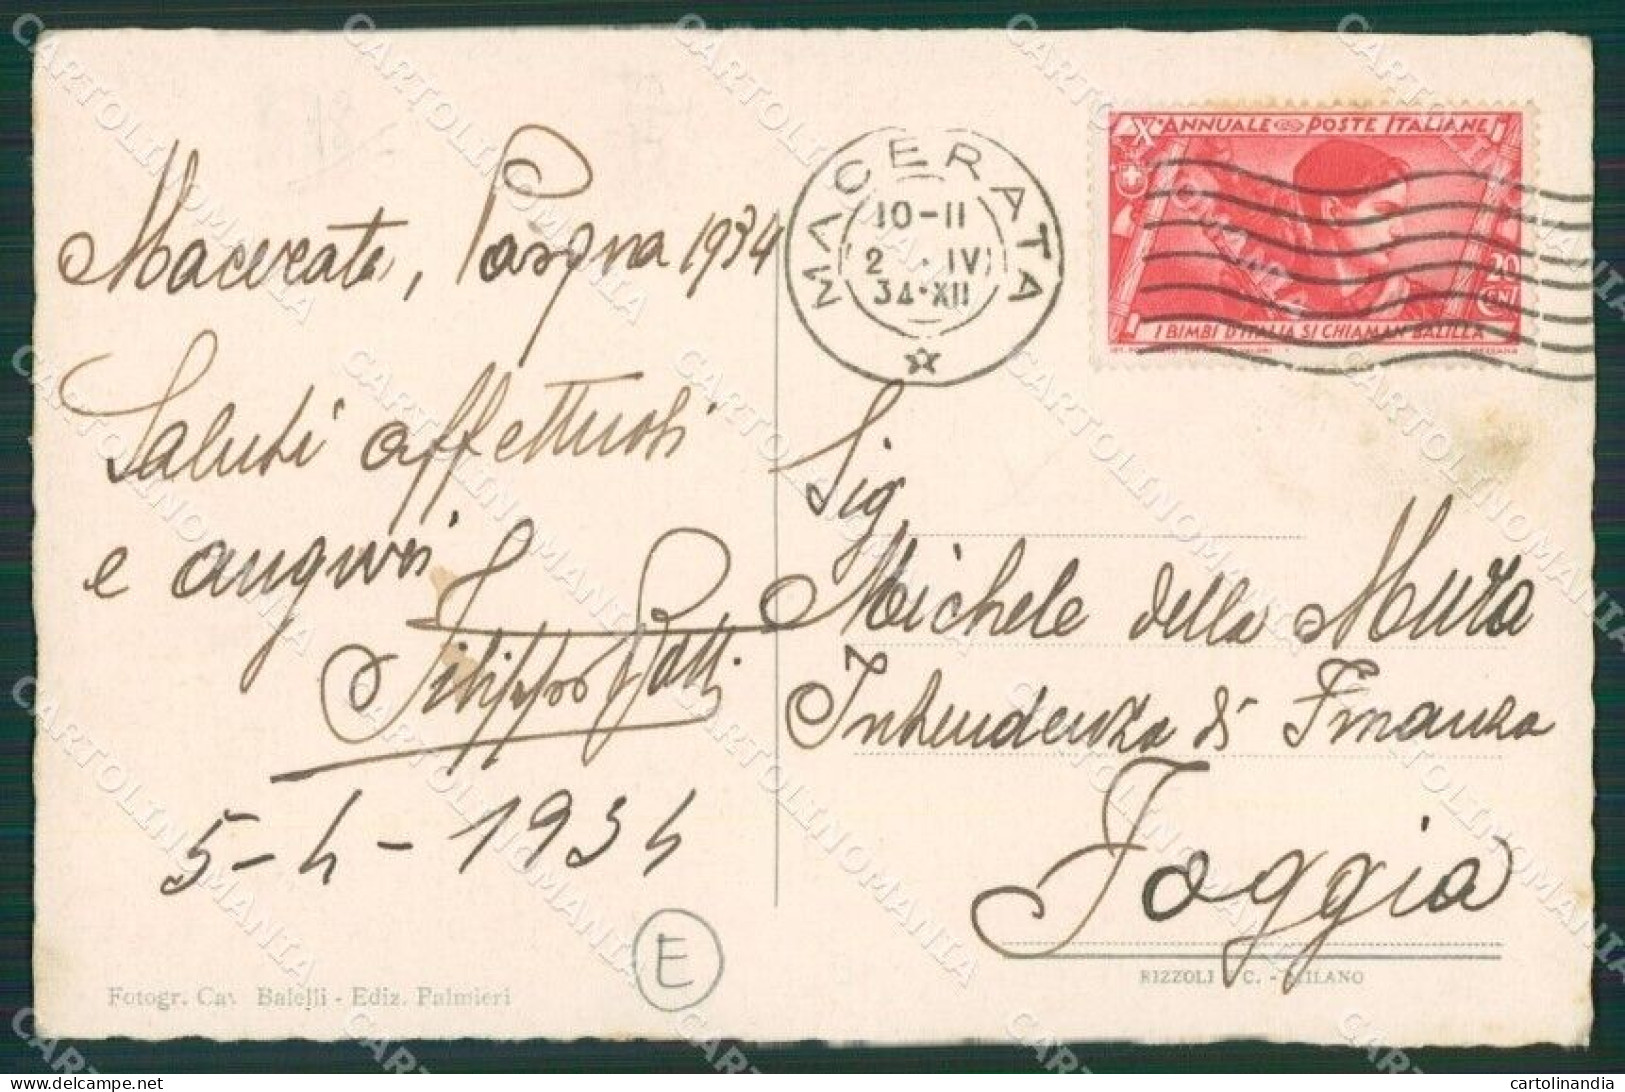 Macerata, Pasqua 1934
Saluti affettuosi
e auguri
Filippo
5-4-1934
MACERATA
10-11
2 . IV
34·XII
X° ANNUALE POSTE ITALIANE
20
CENT
I BIMBI D'ITALIA SI CHIAMAN BALILLA
Sig
Michele della Mura
Intendenza di Finanza
Foggia
E
RIZZOLI & C. - MILANO
Fotogr. Cav. Balelli - Ediz. Palmieri
CARTOLINOMANIA
cartolinandia